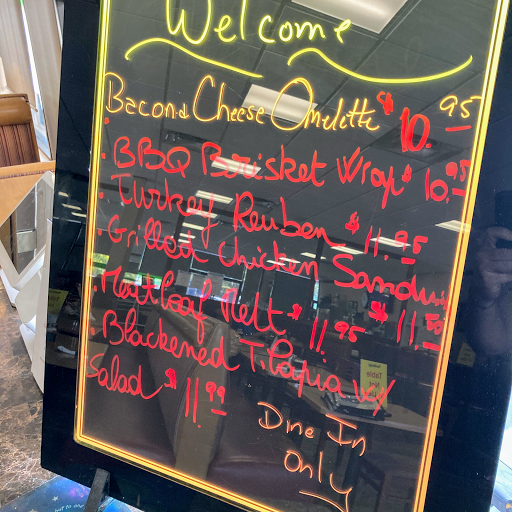 Welcome
Bacon & Cheese Omelette $10.95
• BBQ Brisket Wrap $10.95
• Turkey Reuben $11.95
• Grilled Chicken Sandwich $11.50
• Meatloaf Melt $11.95
• Blackened Tilapia w/
Salad $11.99
Dine In
Only